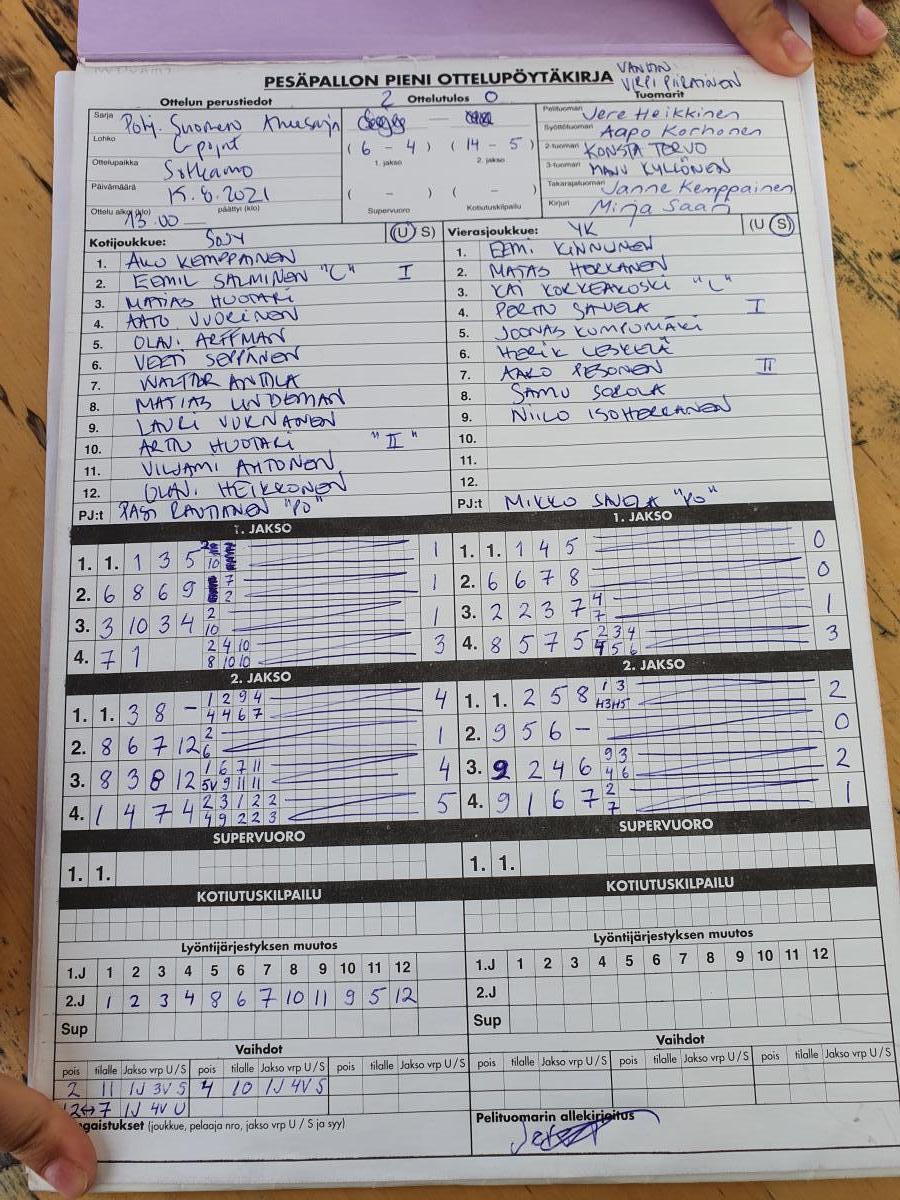 PESÄPALLON PIENI OTTELUPÖYTÄKIRJA
VIRPI PIIRAINEN
Ottelun perustiedot
2 Ottelutulos 0
Tuomarit
Sarja Pohj. Suomen
Lohko
Ottelupaikka Sotkamo
Päivämäärä 15.8.2021
Ottelu alkoi (klo) 13.00 päättyi (klo)
( 6 - 4 ) ( 14 - 5 )
1. jakso 2. jakso
( - ) ( - )
Supervuoro Kotiutuskilpailu
Pelituomari Jere Heikkinen
Syöttötuomari Aapo Korhonen
2-tuomari KONSTA TERVO
3-tuomari MANU KYLLÖNEN
Takarajatuomari Janne Kemppainen
Kirjuri Mirja Saari
Kotijoukkue: SoJy (U S)
1. AKU KEMPPAINEN
2. EEMIL SALMINEN "C" I
3. MATIAS HUOTARI
4. AATU VUORINEN
5. OLAVI ARFFMAN
6. VEETI SEPPÄNEN
7. WALTTER ANTTILA
8. MATIAS LINDEMAN
9. LAURI VORNANEN
10. ARTTU HUOTARI "II"
11. VILJAMI AHTONEN
12. OLAVI HEIKKONEN
PJ:t PASI RAUTIAINEN "PO"
Vierasjoukkue: YK (U S)
1. EEMI KINNUNEN
2. MATIAS
3. KAI KORKEAKOSKI "C"
4. PERTTU SAUKLA I
5. JOONAS KUMPUMÄKI
6. HENRIK LESKELÄ
7. AAKO PESONEN II
8. SAMU SOROLA
9. NIILO ISOHERRANEN
10.
11.
12.
PJ:t MIKKO "PO"
1. JAKSO
1. 1. 1 3 5 10 1
2. 6 8 6 9 7 2 1
3. 3 10 3 4 2 10 1
4. 7 1 2 4 10 8 10 10 3
2. JAKSO
1. 1. 3 8 - 1 2 9 4 4 4 6 7 4
2. 8 6 7 12 2 6 1
3. 8 3 8 12 1 6 7 11 5V 9 11 11 4
4. 1 4 7 4 2 3 1 2 2 4 9 2 2 3 5
SUPERVUORO
1. 1.
KOTIUTUSKILPAILU
1. JAKSO
1. 1. 1 4 5 0
2. 6 6 7 8 0
3. 2 2 3 7 4 7 1
4. 8 5 7 5 2 3 4 4 5 6 3
2. JAKSO
1. 1. 2 5 8 1 3 H3 H5 2
2. 9 5 6 - 0
3. 9 2 4 6 9 3 4 6 2
4. 9 1 6 7 2 7 1
SUPERVUORO
1. 1.
KOTIUTUSKILPAILU
Lyöntijärjestyksen muutos
1.J 1 2 3 4 5 6 7 8 9 10 11 12
2.J 1 2 3 4 8 6 7 10 11 9 5 12
Sup
Vaihdot
pois tilalle Jakso vrp U / S pois tilalle Jakso vrp U / S pois tilalle Jakso vrp U / S
2 11 1J 3V S 4 10 1J 4V S
12↔7 1J 4V U
gaistukset (joukkue, pelaaja nro, jakso vrp U / S ja syy)
Lyöntijärjestyksen muutos
1.J 1 2 3 4 5 6 7 8 9 10 11 12
2.J
Sup
Vaihdot
pois tilalle Jakso vrp U / S pois tilalle Jakso vrp U / S pois tilalle Jakso vrp U / S
Pelituomarin allekirjoitus